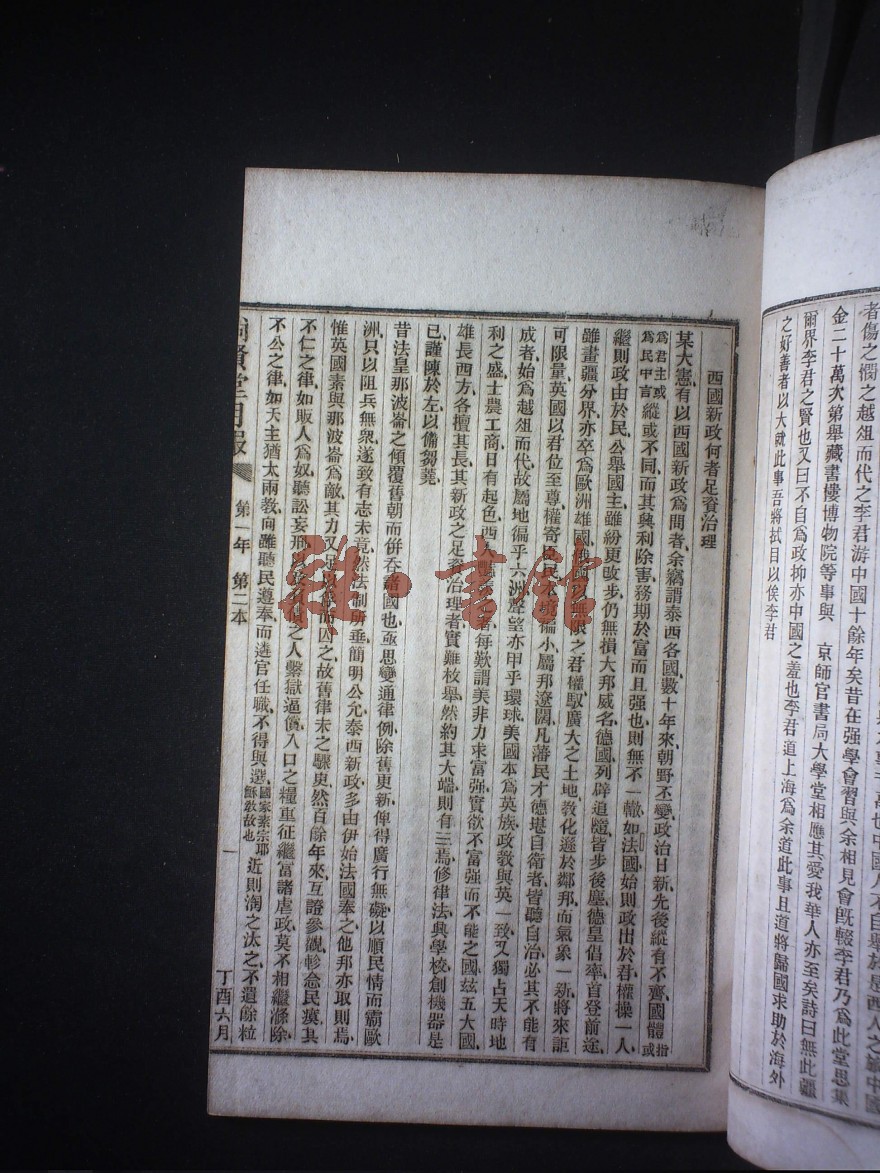 金二十萬次第舉藏書樓博物院等事與 京師官書局大學堂相應其愛我華人亦至矣詩曰無此疆
爾界李君之賢也又曰不自為政抑亦中國之羞也李君道上海為余道此事且道將歸國求助於海外
之好善者以大就此事吾將拭目以俟李君
西國新政何者足資治理
某大憲有以西國新政為問者余竊謂泰西各國數十年來朝野丕變政治日新先後縱有不齊國體指或
為君主或為民中言縱或不同而其興利除害務期於富而且强也則無不一轍如法國始則政出於君權操一人
繼則政由於民公舉國主雖紛更改步仍無損大邦威名德國列辟追隨皆步後塵德皇倡率首登前途
雖畫疆分界亦卒為歐洲雄國俄國以無限之君權馭廣大之土地教化遜於鄰邦而氣象一新將來詎
可限量英國以君位至尊權寄民偏小屬邦遼闊凡藩民才德堪自衛者皆聽自治必其不能有
成者始為越俎而代故屬地偏乎六洲聲望亦甲乎環球美國本為英族政教與英一致又獨占天時地
利之盛士農工商日有起色西人每歎謂美非力求富强實欲不富强而不能之國玆五大國
雄長西方各擅其長其新政之足資治理者實難枚舉然約其大端則有三焉修律法興學校創機器是
已謹陳於左以備芻蕘
昔法皇那波崙之傾覆舊朝而併吞諸國也亟思變通律例除舊更新俾得廣行無礙以順民情而霸歐
洲只以阻兵無衆遂致有志未竟然法制所垂簡明公允泰西新政多由伊始法國奉之他邦亦取則焉
惟英國素與那波崙為敵其力又足以而囚之故舊律未之驟更然百餘年來互證參觀軫念民瘼其
不仁之律如販人為奴聽訟妄刑以之人繫獄逼償人口之糧重征繼富諸虐政莫不相繼滌除
不公之律如天主猶太兩教向雖聽民遵奉而遴官任職不得與選國家素宗耶穌教故也近則淘之汰之不遺餘粒
尚賢堂月報 第一年 第二本 一 丁酉六月